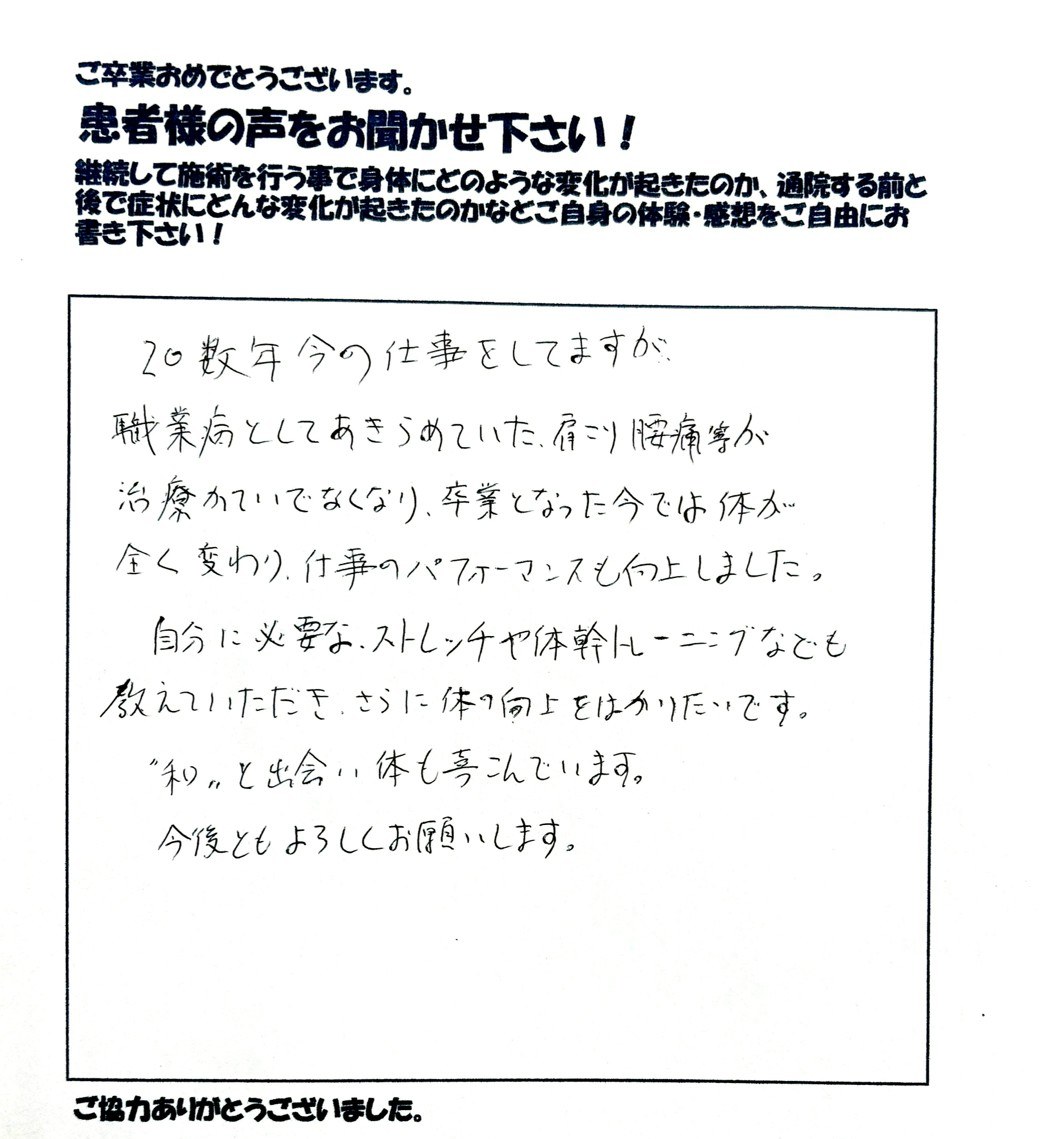 ご卒業おめでとうございます。
患者様の声をお聞かせ下さい！
継続して施術を行う事で身体にどのような変化が起きたのか、通院する前と
後で症状にどんな変化が起きたのかなどご自身の体験・感想をご自由にお
書き下さい！
20数年今の仕事をしてますが、
職業病としてあきらめていた、肩こり腰痛等が
治療かていでなくなり、卒業となった今では体が
全く変わり、仕事のパフォーマンスも向上しました。
自分に必要な、ストレッチや体幹トレーニングなども
教えていただき、さらに体の向上をはかりたいです。
〝和〟と出会い体も喜こんでいます。
今後ともよろしくお願いします。
ご協力ありがとうございました。